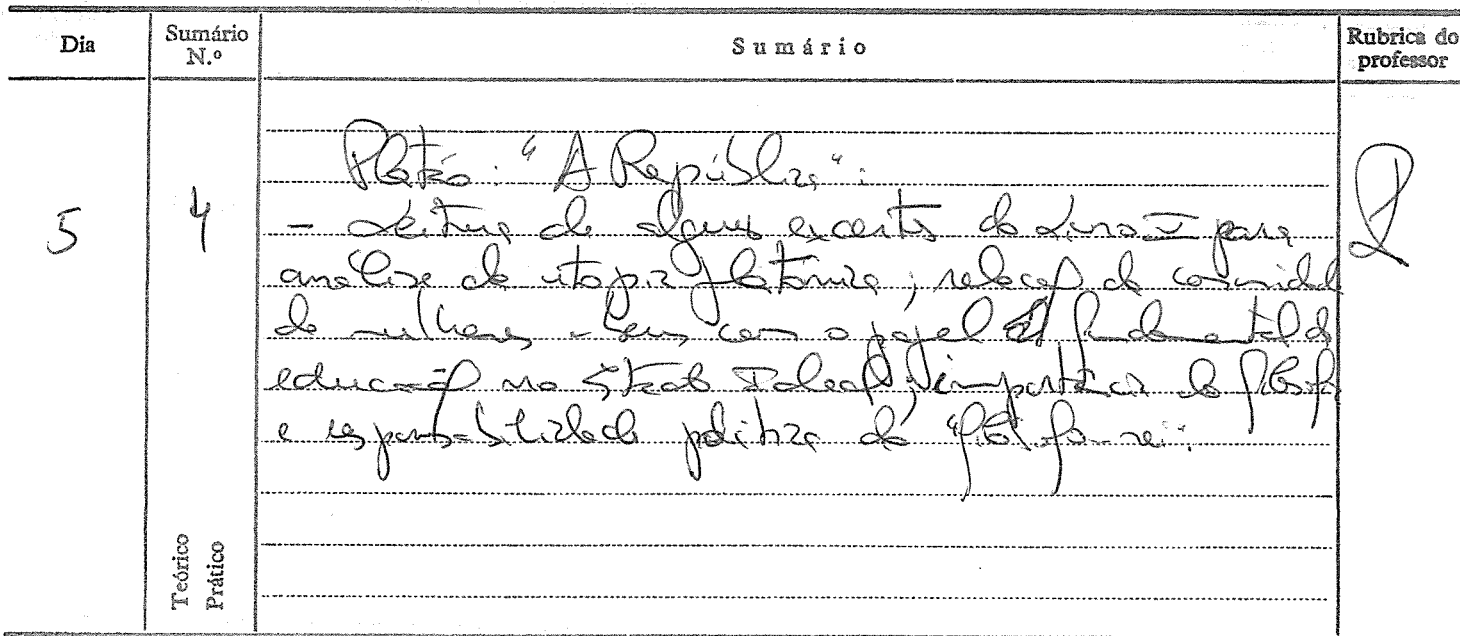 Dia
Sumário N.º
Sumário
Rubrica do professor
5
4
Platão: "A República":
- Leitura de alguns excertos do Livro para
análise da utopia platónica; relação da comunidade
de mulheres e bens com o papel fundamental da
educação no Estado Ideal; importância do filósofo
e responsabilidade política do "filósofo-rei".
Teórico
Prático